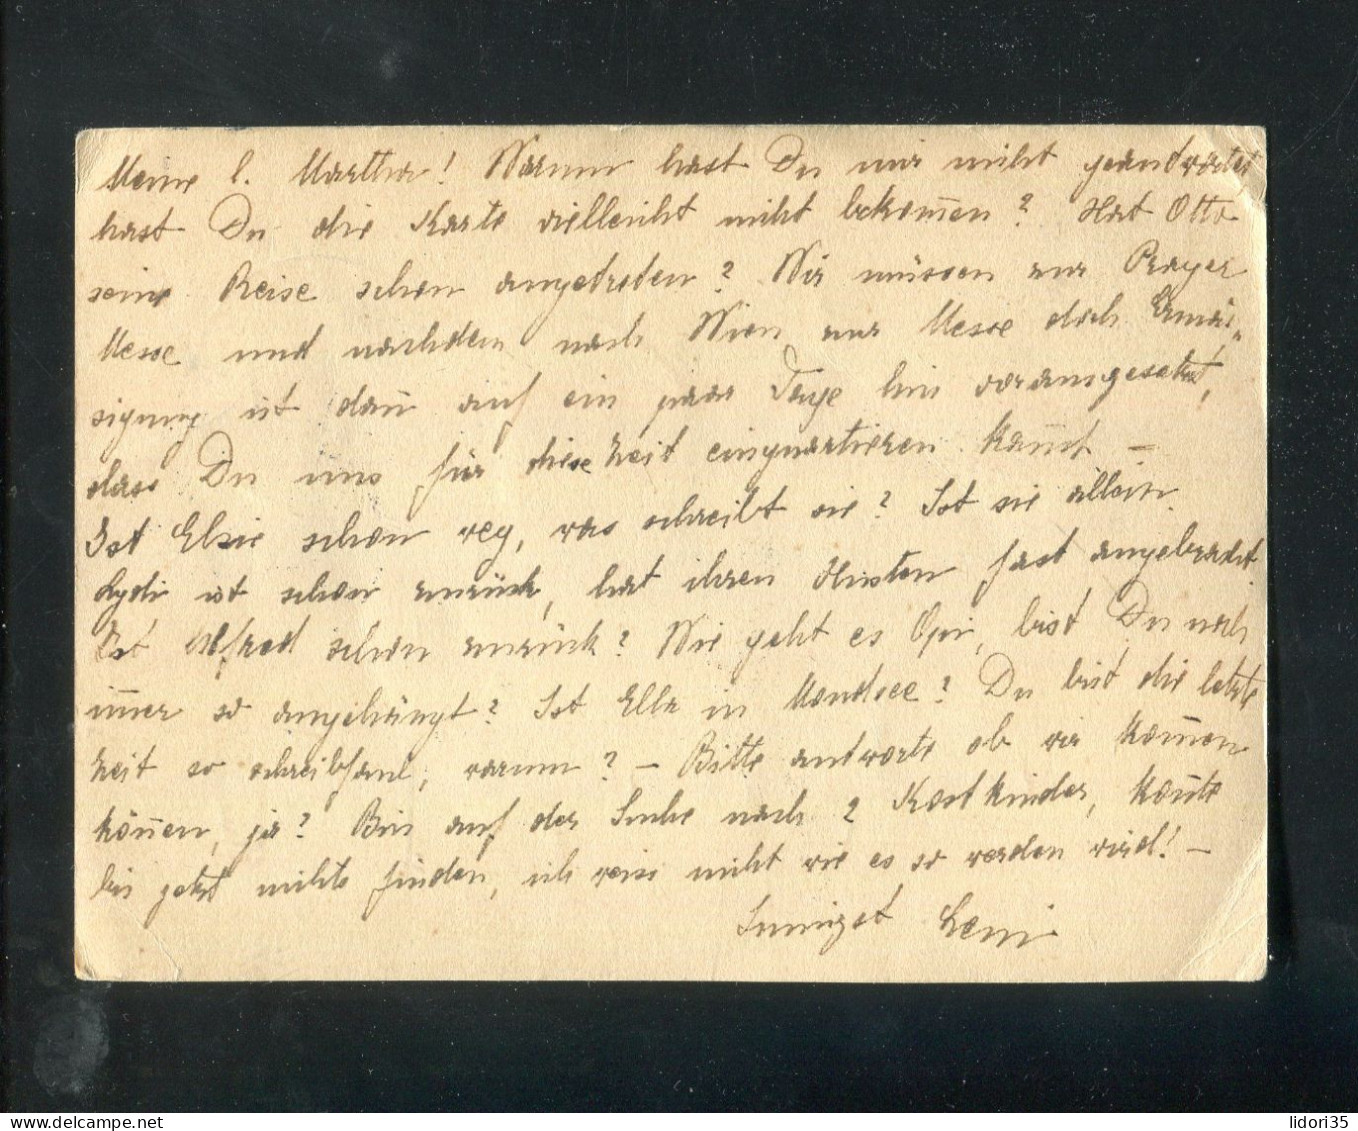 Meine l. Martha! Warum hast Du mir nicht geantwortet
hast Du die Karte vielleicht nicht bekom̄en? Hat Otto
seine Reise schon angetreten? Wir müssen zur Prager
Messe und nachdem nach Wien zur Messe dich Ermäs„
sigung ist dan̄ auf ein paar Tage hin vorausgesetzt,
dass Du uns für diese Zeit einquartieren kan̄st –
Ist Elsie schon weg, was schreibt sie? Ist sie allein.
Lydi ist schon zurück, hat ihren Husten fast angebracht.
Ist Alfred schon zurück? Wie geht es Opi, bist Du noch
im̄er so angehängt? Ist Ella in Mondsee? Du bist die letzte
Zeit so schreibfaul, warum? – Bitte antworte ob wir kom̄en
kön̄en, ja? Bin auf der Suche nach 2 Kostkinder, kon̄te
bis jetzt nichts finden, ich weiss nicht wie es so werden wird! –
Innigst Leni
lidori35